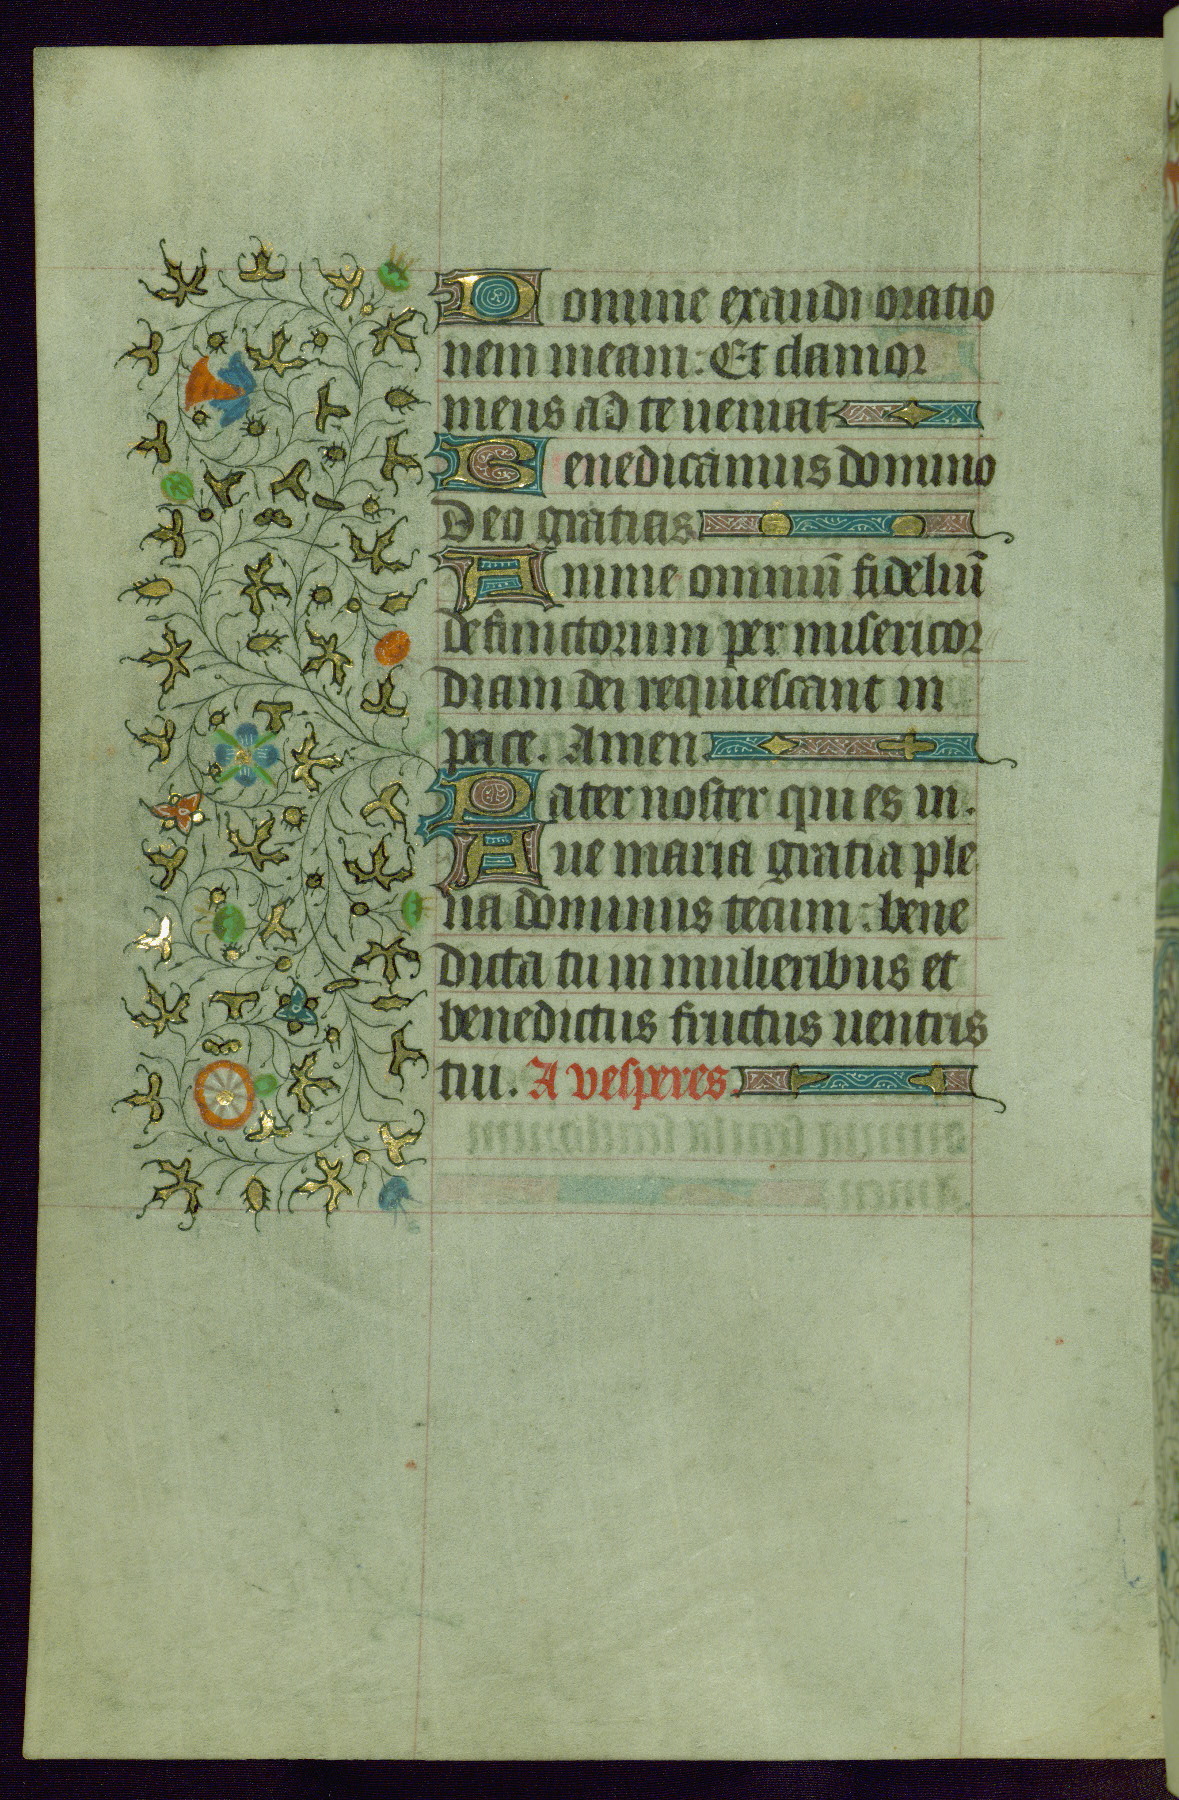 Domine exaudi oratio
nem meam: Et clamor
meus ad te ueniat
Benedicamus domino
Deo gratias
Anime omniū fideliū
defunctorum per misericor
diam dei requiescant in
pace. Amen
Pater noster qui es in.
Aue maria gratia ple
na dominus tecum: bene
dicta tu in mulieribus et
benedictus fructus uentris
tui. A vesperes.